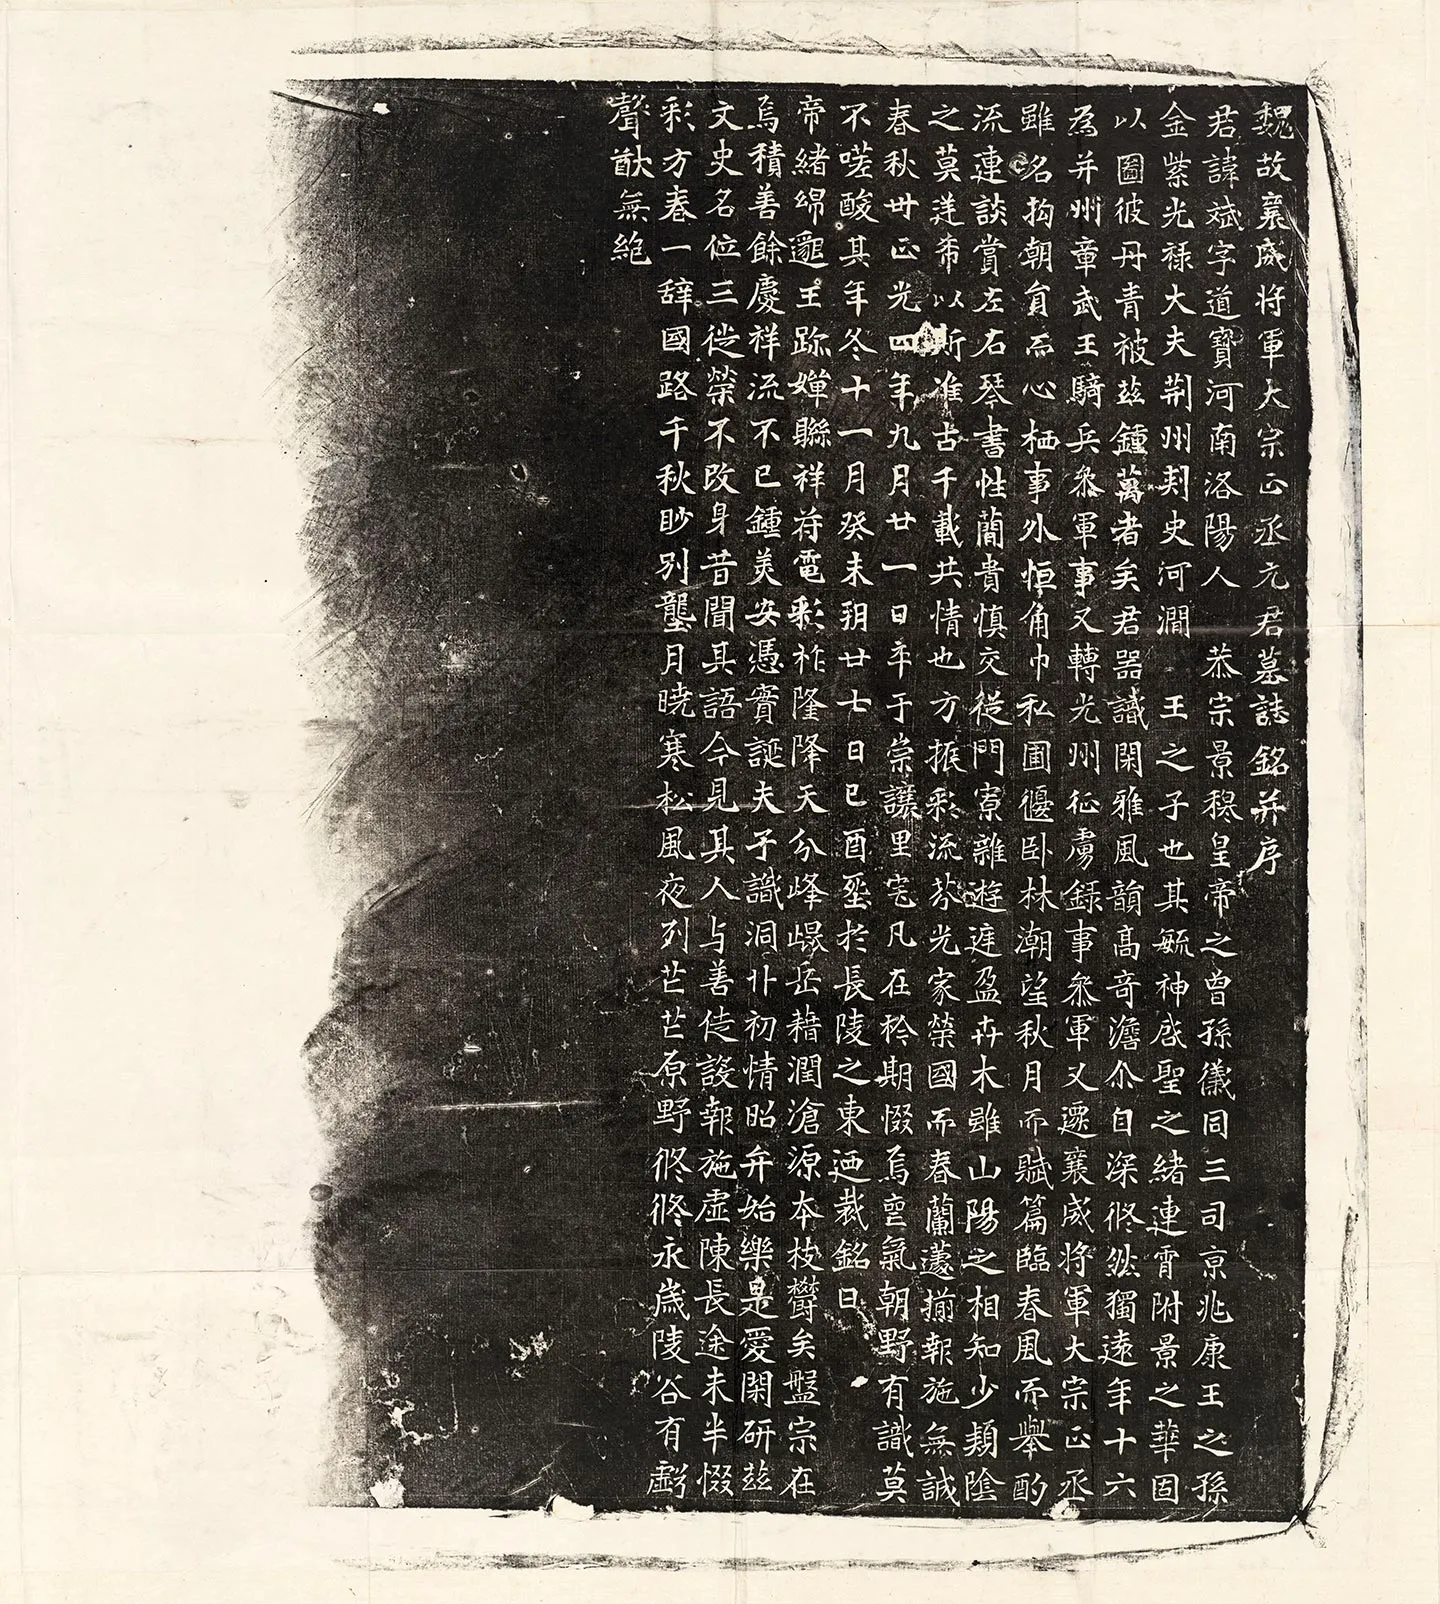 魏故襄威將軍大宗正丞元君墓誌銘并序
君諱斌字道寶河南洛陽人 恭宗景穆皇帝之曾孫儀同三司京兆康王之孫
金紫光祿大夫荆州刾史河澗 王之子也其毓神啓聖之緒連霄附景之華固
以圖彼丹青被兹鍾萬者矣君器識閑雅風韻髙奇澹尒自深倐然獨遠年十六
為并州章武王騎兵叅軍事又轉光州征虜録事叅軍又遷襄威将軍大宗正丞
雖名拘朝員而心栖事外恒角巾私圃偃卧林潮望秋月而賦篇臨春風而舉酌
流連談賞左右琴書性蕳貴慎交從門寮雜遊遰盈卉木雖山陽之相知少頪陰
之莫逹希以斯准古千載共情也方振彩流芬光家榮國而春蘭蘧揃報施無誠
春秋卅正光四年九月廿一日卒于崇讓里宅凡在衿期惙焉亝氣朝野有識莫
不嗟酸其年冬十一月癸未朔廿七日己酉塟於長陵之東迺裁銘曰
帝緒綿邈王跡嬋聮祥苻電彩祚隆降天分峰崿岳藉潤滄源本枝欝矣盤宗在
焉積善餘慶祥流不已鍾美安憑實誕夫子識洞丱初情昭弁始樂是愛閑研兹
文史名位三徙榮不改身昔聞其語今見其人与善徒設報施虚陳長途未半惙
彩方春一辞國路千秋眇別壟月曉寒松風夜列芒芒原野倐倐永嵗陵谷有虧
聲猷無絶